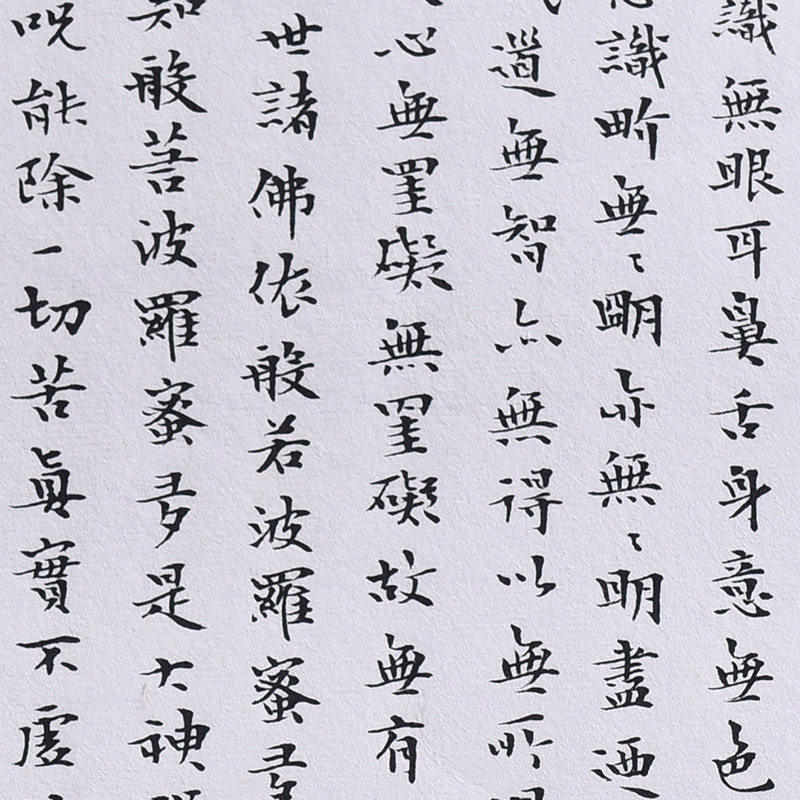 識無眼耳鼻舌身意無色
識畍無〻明亦無〻明盡迺
道無智亦無得以無所
心無罣礙無罣礙故無有
世諸佛依般若波羅蜜多
知般若波羅蜜多是大神
呪能除一切苦眞實不虛